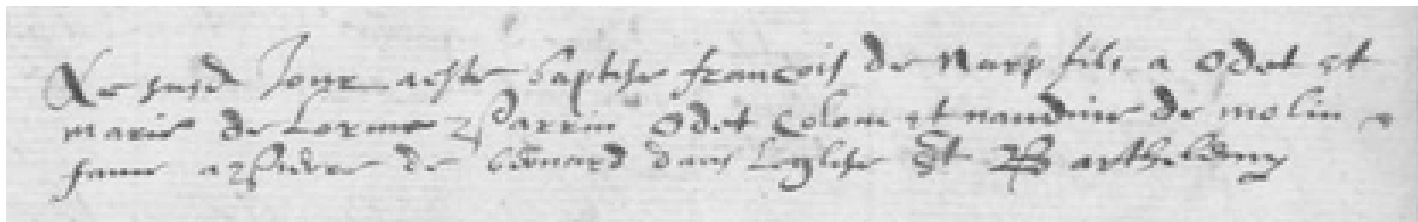 Le susd Jour aeste baptise francois de Narp fils a Odet et
marie de Lorme parrin Odet Colom et naudine de molin
dans Leglise St Barthelemy